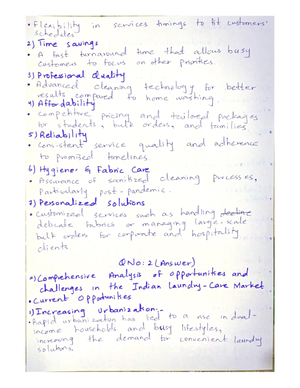 • Flexibility in services timings to fit customers'
schedules
2) Time savings
• A fast turnaround time that allows busy
customers to focus on other priorities.
3) Profesional Quality
• Advanced cleaning technology for better
results compared to home washing.
4) Affordability
• Competitive pricing and tailored packages
for students, bulk orders, and families.
5) Reliability
• Consistent service quality and adherence
to promised timelines
6) Hygiene & Fabric Care
• Assurance of sanitized cleaning processes,
Particularly post-pandemic.
7) Personalized solutions
• Customized services such as handling
delicate fabrics or managing large-scale
bulk orders for corporate and hospitality
clients
QNo:2 (Answer)
*) Comprehensive Analysis of opportunities and
challenges in the Indian Laundry-Care Market
• Current Opportunities
1) Increasing Urbanization:-
• Rapid urbanization has led to a rise in dual-
income households and busy lifestyles,
increasing the demand for convenient laundry
solutions.